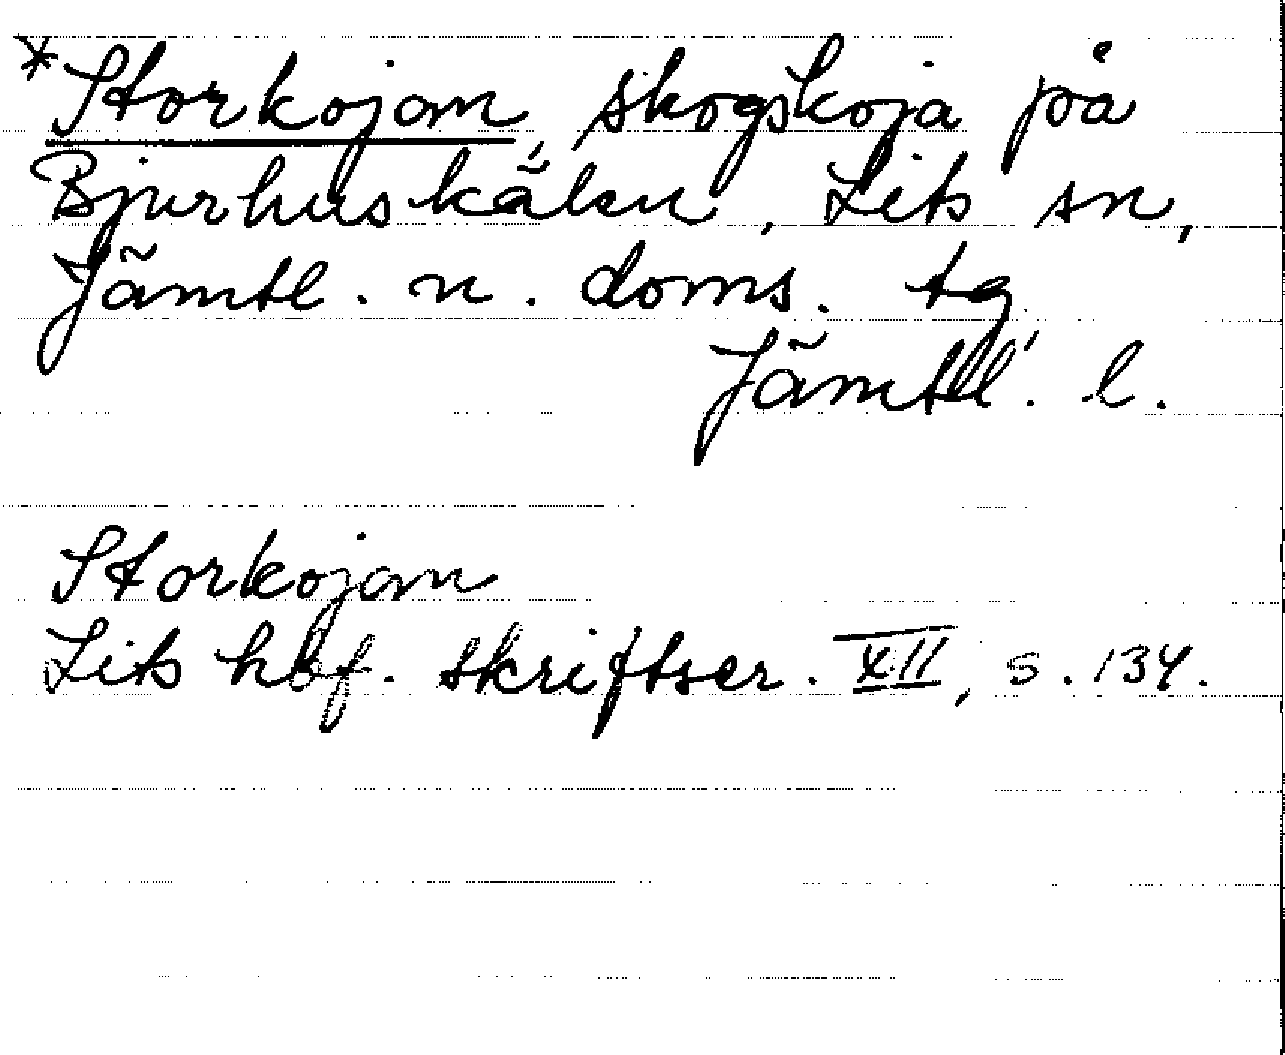 *Storkojan, skogskoja på
Bjurhuskälen, Lits sn,
Jämtl. n. doms. tg,
Jämtl. l.
Storkojan
Lits hbf. skriftser. XII, s. 134.